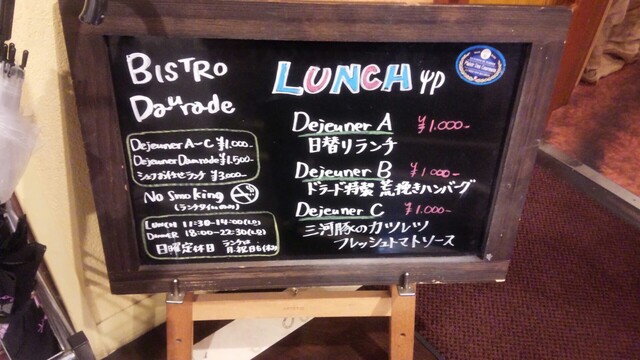 BISTRO
Daurade
Dejeuner A~C ¥1,000-
Dejeuner Daurade ¥1,500-
シェフお任せランチ ¥3,000-
No Smoking
(ランチタイムのみ)
LUNCH 11:30-14:00(L.O)
DINNER 18:00-22:30(L.O)
日曜定休日
LUNCH
Dejeuner A ¥1,000-
日替りランチ
Dejeuner B ¥1,000-
ドラード特製 荒挽きハンバーグ
Dejeuner C ¥1,000-
三河豚のカツレツ
フレッシュトマトソース